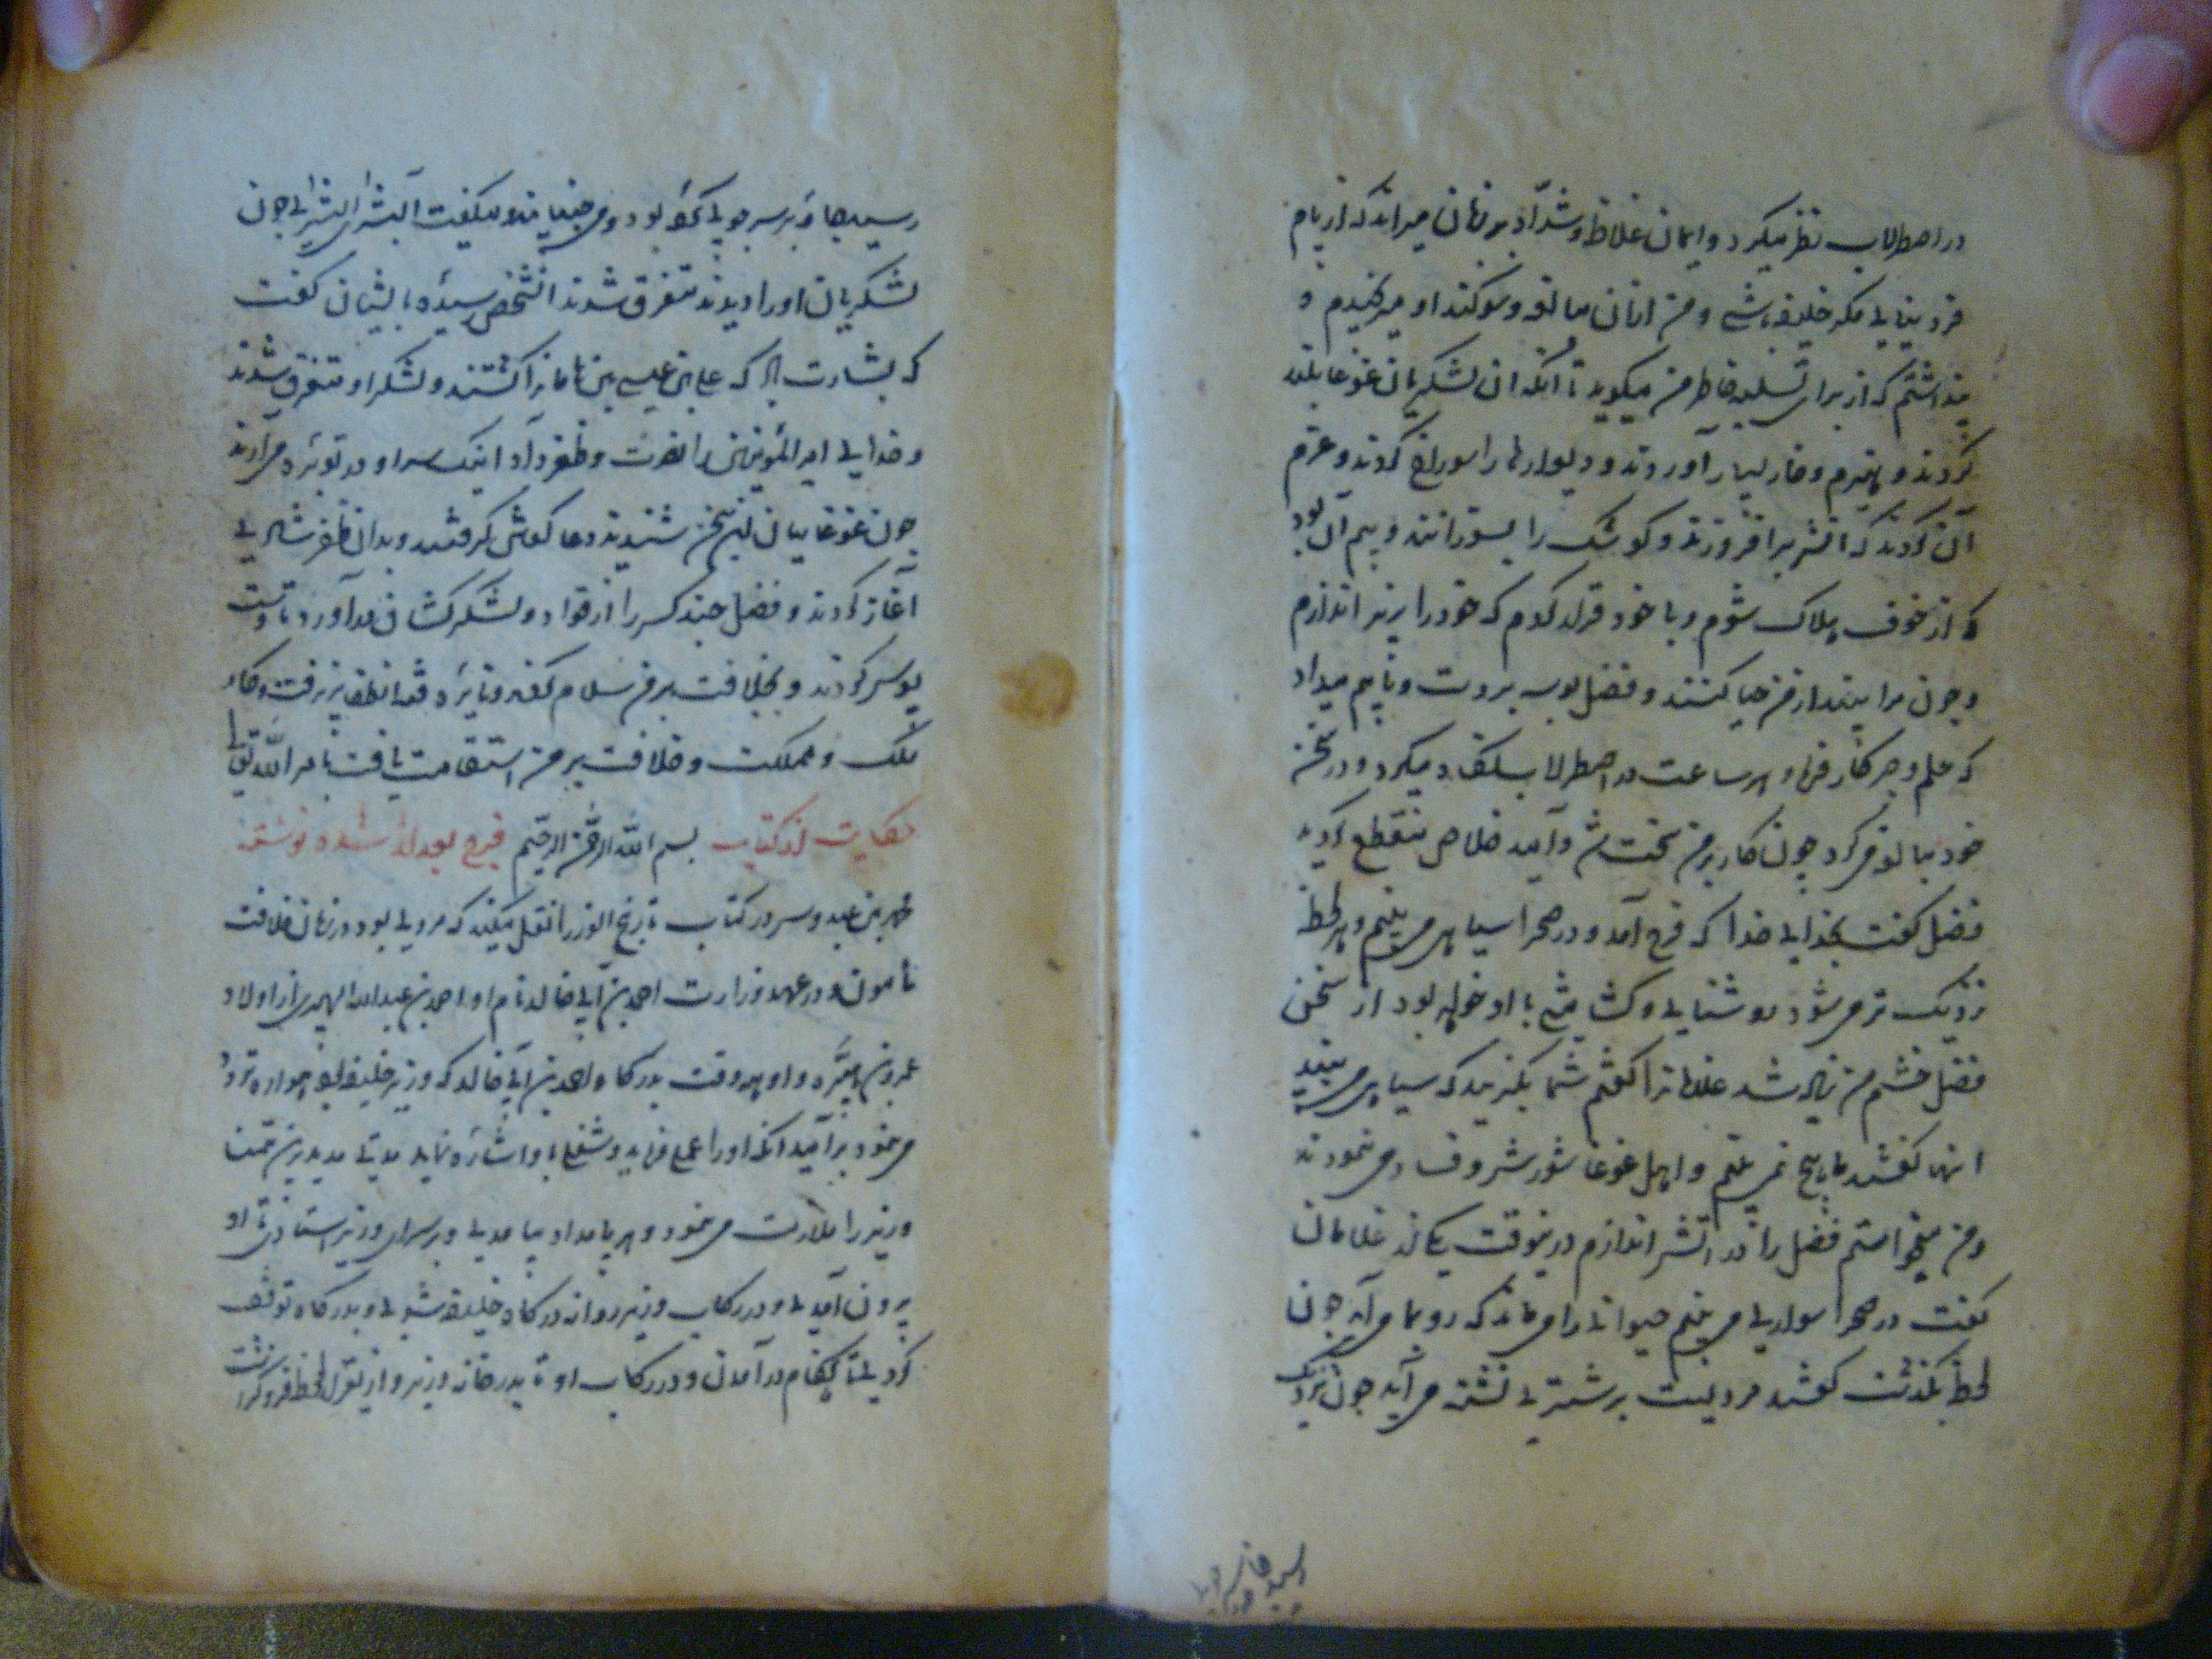 در اصطرلاب نظر میکرد و ایمان غلاظ و شداد بر زبان میراند که ازین بام
فرو نیایی مکر خلیفه باشی و من از آن مبالغه و سوکند او میرنجیدم و
پنداشتم که از برای تسلیه خاطر من میکوید تا آنکه آن لشکریان غوغا بلند
کردند و هیزم و خار بسیار آوردند و دیوارها را سوراخ کردند و عزم
آن کردند که آتش برافروزند و کوشک را بسوزانند و بیم آن بود
که از خوف هلاک شوم و با خود قرار کردم که خود را بزیر اندازم
و چون مرا بینند از من حیا کنند و فضل بوسه بر دست و پایم میداد
که حلم و صبر کار فرما و هر ساعت در اصطرلاب میکرد و در سخن
خود مبالغه میکرد چون کار بر من سخت شد و امید خلاص منقطع کردید
فضل کفت بخدای خدا که فرج آمد و در صحرا سیاهی می بینم و هر لحظه
نزدیک تر می شود روشنایی و کشایشی با او خواهد بود از سخن
فضل خشم من زیاده شد غلامانرا کفتم شما بنکرید که سیاهی می بینید
ایشان کفتند ما هیچ نمی بینیم و اهل غوغا شور شروع می نمودند
و من میخواستم فضل را در آتش اندازم درینوقت یکی از غلامان
کفت در صحرا سواری می بینم حیوانی را می ماند که رو بما می آید چون
لحظه بکذشت کفتند مردیست بر شتری نشسته می آید چون نزدیک
رسید جامه بر سر چوبی کرده بود و می جنبانید و میکفت البشری البشری چون
لشکریان او را دیدند متفرق شدند آنشخص رسیده بایشان کفت
که بشارت باد که علی بن عیسی بن ماهانرا کشتند و لشکر او متفرق شدند
و خدای امیر المؤمنین را نصرت و ظفر داد اینک سر او در توبره می آرند
چون غوغاییان این سخن شنیدند دعا کوش کرفتند و بدان ظفر شادی
آغاز کردند و فضل چند کس را از قواد و لشکرکشان درآورد تا دست
بوس کردند و بخلافت بر من سلام کفتند و نایره فتنه انطفا پذیرفت و کار
ملک و مملکت و خلافت بر من استقامت یافت بامر الله تعالی
حکایت از کتاب بسم الله الرحمن الرحیم فرج بعد از شده نوشته
محمد بن عبدوس در کتاب تاریخ الوزرا نقل میکند که مردی بود در زمان خلافت
مامون و در عهد وزارت احمد بن ابی خالد نام او احمد بن عبدالله از اولاد
عمر بن هبیره و او همه وقت بدرکاه احمد بن ابی خالد که وزیر خلیفه بود همواره تردد
می نمود بر امید آنکه او را عمل فرماید و شغلی باو اشاره نماید مدتی مدید برین تمنا
وزیر را ملازمت می نمود و هر بامداد بیامدی و بر سرای وزیر استادی تا او
بیرون آمدی و در رکاب وزیر روانه درکاه خلیفه شدی و بدرکاه توقف
کردی تا هنکام درآمدن و در رکاب او تا بدر خانه وزیر